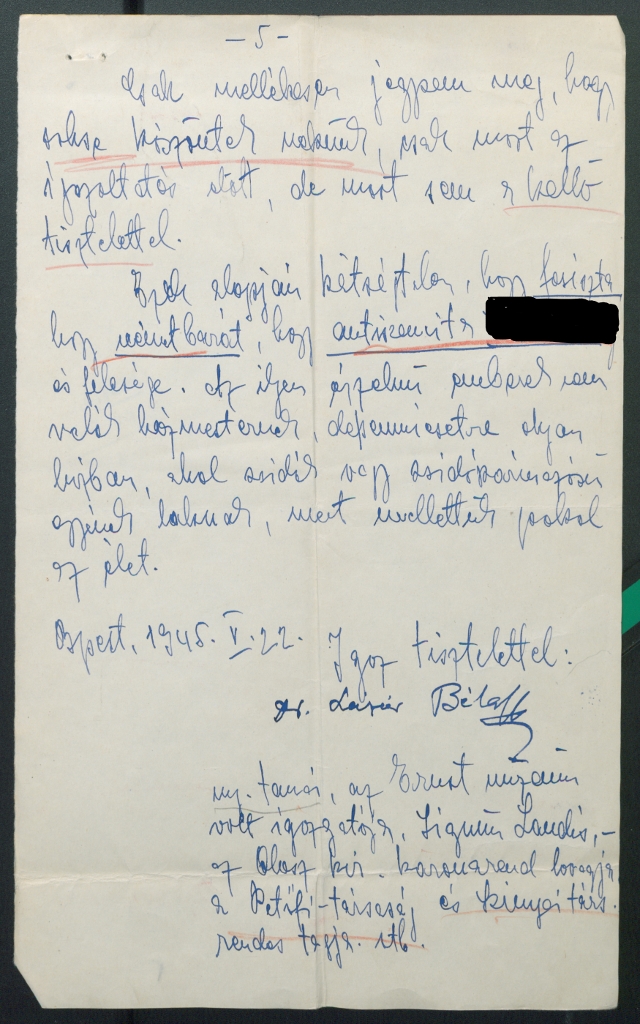 - 5 -
Csak mellékesen jegyzem meg, hogy
sohse köszöntek nekünk, csak most az
igazoltatás előtt, de most sem a kellő
tisztelettel.
Ezek alapján kétségtelen, hogy fasiszta
hogy németbarát, hogy antiszemita
és felesége. Az ilyen érzelmű emberek nem
valók házmesternek, semmiesetre olyan
házban, ahol zsidók vagy zsidószármazású
egyének laknak, mert mellettük pokol
az élet.
Bpest, 1945. V. 22.
Igaz tisztelettel:
Dr. Lázár Béla
ny. tanár, az Ernst múzeum
volt igazgatója, Signum Laudis, -
az Olasz kir. koronarend lovagja,
a Petőfi-társaság és társ.
rendes tagja. stb.